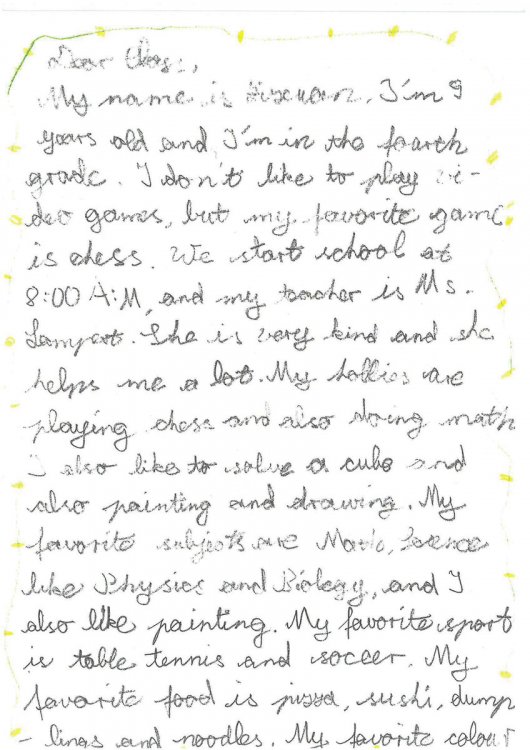 Dear Class,
My name is Zixuan. I'm 9
years old and I'm in the fourth
grade. I don't like to play vi-
deo games, but my favorite game
is chess. We start school at
8:00 A:M, and my teacher is Ms.
Lampert. She is very kind and she
helps me a lot. My hobbies are
playing chess and also doing math
I also like to solve a cube and
also painting and drawing. My
favorite subjects are Math, Science
like Physics and Biology, and I
also like painting. My favorite sport
is table tennis and soccer. My
favorite food is pizza, sushi, dump
- lings and noodles. My favorite colour